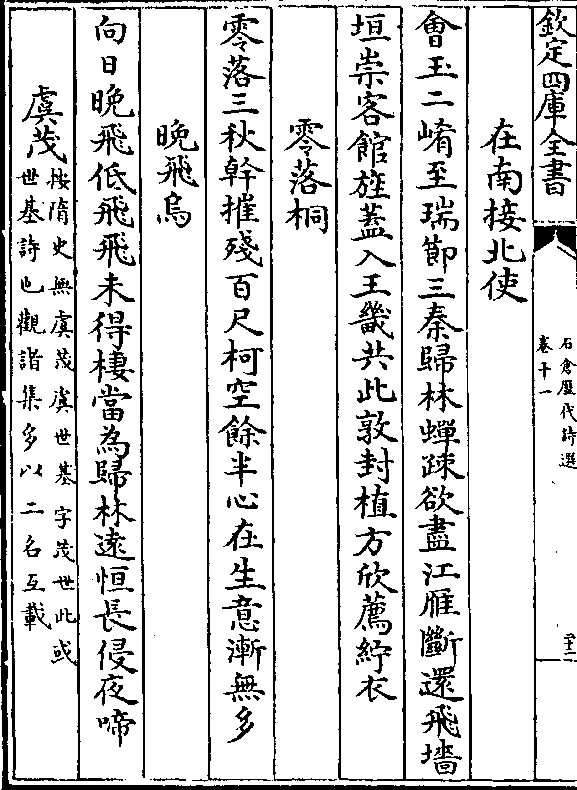 欽定四庫全書
石倉歷代詩選
卷十一
在南接北使
會玉二崤至瑞節三秦歸林蟬疎欲盡江雁斷還飛墻
垣崇客館旌蓋入王畿共此敦封植方欣薦紵衣
零落桐
零落三秋幹摧殘百尺柯空餘半心在生意漸無多
晚飛烏
向日晚飛低飛飛未得棲當為歸林遠恒長侵夜啼
虞茂
按隋史無虞茂虞世基字茂世此或
世基詩也觀諸集多以二名互載